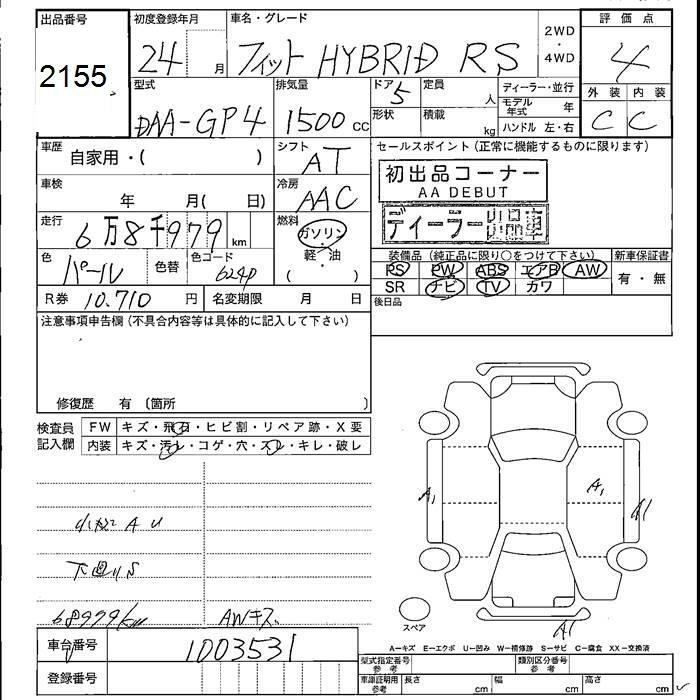 出品番号
2155
初度登録年月
24 月
車名・グレード
フィット HYBRID RS
2WD
・
4WD
評価点
4
型式
DAA-GP4
排気量
1500 cc
ドア
5
形状
定員
人
積載
kg
ディーラー・並行
モデル年式 年
ハンドル 左・右
外装 内装
C C
車歴
自家用・( )
シフト
AT
セールスポイント(正常に機能するものに限ります)
初出品コーナー
AA DEBUT
ディーラー出品車
車検
年 月( 日)
冷房
AAC
走行
6万8千979 km
燃料
ガソリン
・
軽・油
( )
色
パール
色替
色コード
624P
装備品(純正品に限り○をつけて下さい)
新車保証書
PS PW ABS エアB AW
SR ナビ TV カワ
有・無
R券 10,710 円
名変期限 月 日
後日品
注意事項申告欄(不具合内容等は具体的に記入して下さい)
修復歴 有 (箇所 )
検査員記入欄
FW キズ・飛石・ヒビ割・リペア跡・X要
内装 キズ・汚レ・コゲ・穴・スレ・キレ・破レ
A U
下回りS
68979km
AWキズ
A1
A1
A1
A1
スペア
A−キズ E−エクボ U−凹み W−補修跡 S−サビ C−腐食 XX−交換済
車台番号
1003531
登録番号
型式指定番号
参考
類別区分番号
参考
車庫証明用
参考
長さ cm
幅 cm
高さ cm